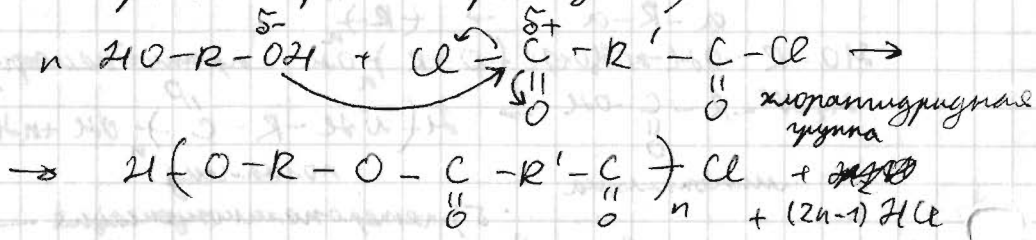 δ- δ+
n HO-R-OH + Cl-C-R'-C-Cl →
O O хлорангидридная
группа
→ H(O-R-O-C-R'-C)n Cl +
O O + (2n-1) HCl